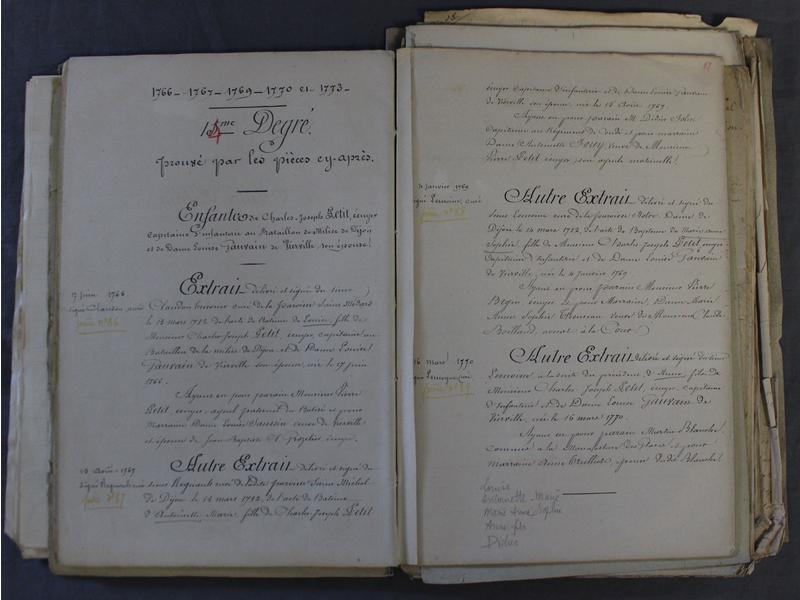 1766 - 1767 - 1769 - 1770 et 1773 -
14me Degré.
prouvé par les pièces cy-après.
Enfants de Charles-Joseph Petit, écuyer
capitaine d'infanterie au Bataillon de Milice de Dijon
et de Dame Louise Gauvain de Vierville, son épouse!
17 juin 1766
Extrait délivré et signé du sieur
curé de la paroisse Saint Médard
pièce n° 86
le 13 mars 1782 de l'acte de Batème de Louise, fille de
Monsieur Charles-Joseph Petit, écuyer, capitaine au
Bataillon de la milice de Dijon et de Dame Louise
Gauvain de Vierville son épouse, née le 17 juin
1766.
Ayant eu pour parain Monsieur Pierre
Petit, écuyer, ayeul paternel du Batisé et pour
marraine Dame Louise veuve de Vierville
et épouse de Jean Baptiste écuyer.
15 Août 1767
Autre Extrait délivré et signé du
sieur Regnault curé de la dite paroisse Saint Michel
pièce n° 87
de Dijon le 14 mars 1782, de l'acte de Batème
d'Antoinette Marie, fille de Charles Joseph Petit
87
écuyer capitaine d'infanterie et de Dame Louise Gauvain
de Vierville son épouse, née le 15 Août 1767.
Ayant eu pour parrain M. Didier
Capitaine au Régiment de et pour marraine
Dame Antoinette veuve de Monsieur
Pierre Petit écuyer, son ayeule maternelle!
4 janvier 1769
Autre Extrait délivré et signé du
signé Lemoine, curé
sieur Lemoine curé de la paroisse Notre Dame de
pièce n° 88
Dijon le 14 mars 1782, de l'acte de Baptème de Marie Anne
Sophie, fille de Monsieur Charles Joseph Petit, écuyer
Capitaine d'Infanterie et de Dame Louise Gauvain
de Vierville, née le 4 janvier 1769.
Ayant eu pour parain Monsieur Pierre
écuyer et pour Marraine, Dame Marie
Anne Sophie veuve de Monsieur
avocat à la Cour
16 mars 1770
Autre Extrait délivré et signé du sieur
Lemoine, à la suite du précédent, d'Anne, fils de
pièce n° 89
Monsieur Charles Joseph Petit, écuyer, capitaine
d'Infanterie et de Dame Louise Gauvain de
Vierville, née le 16 mars 1770.
Ayant eu pour parain Martin Blanche,
commis à la Manufacture des et pour
marraine Anne épouse dudit Blanche!
Louise
Antoinette Marie
Marie Anne Sophie
Anne fils
Didier